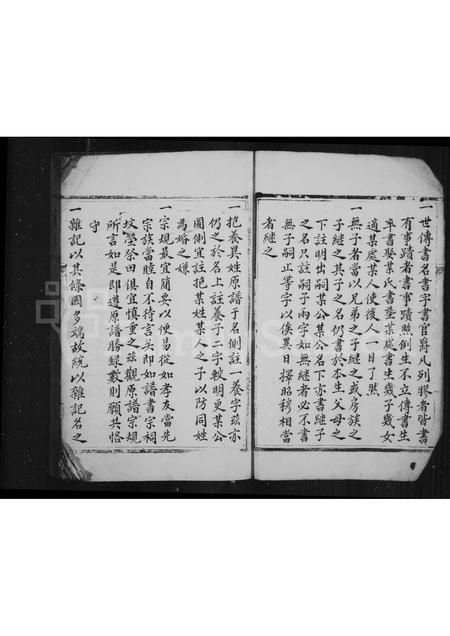 一世傳書名書字書官爵凡列膠者皆書
有事蹟者書事蹟照例生不立傳書生
卒書娶某氏書塟某處書生幾子幾女
適某處某人使後人一目了然
一無子者當以兄弟之子繼之或房族之
子繼之其子之名仍書於本生父母之
下註明出嗣某公某名下亦書繼子
之名只註嗣子兩字如無繼者必不書
無子嗣止等字以俟異日擇昭穆相當
者繼之
一抱養異姓原譜于名側註一養字茲亦
仍之於名上註養子二字較明更某公
圖側宜註抱某姓某人之子以防同姓
為婚之嫌
一宗規最宜簡要以便易從如孝友當先
宗族當睦自不待言矣即如譜書宗祠
坟塋祭田俱宜慎重之茲觀原譜宗規
所言如是即遵原譜勝録數則願共恪
守
一雜記以其條國多端故統以雜記名之